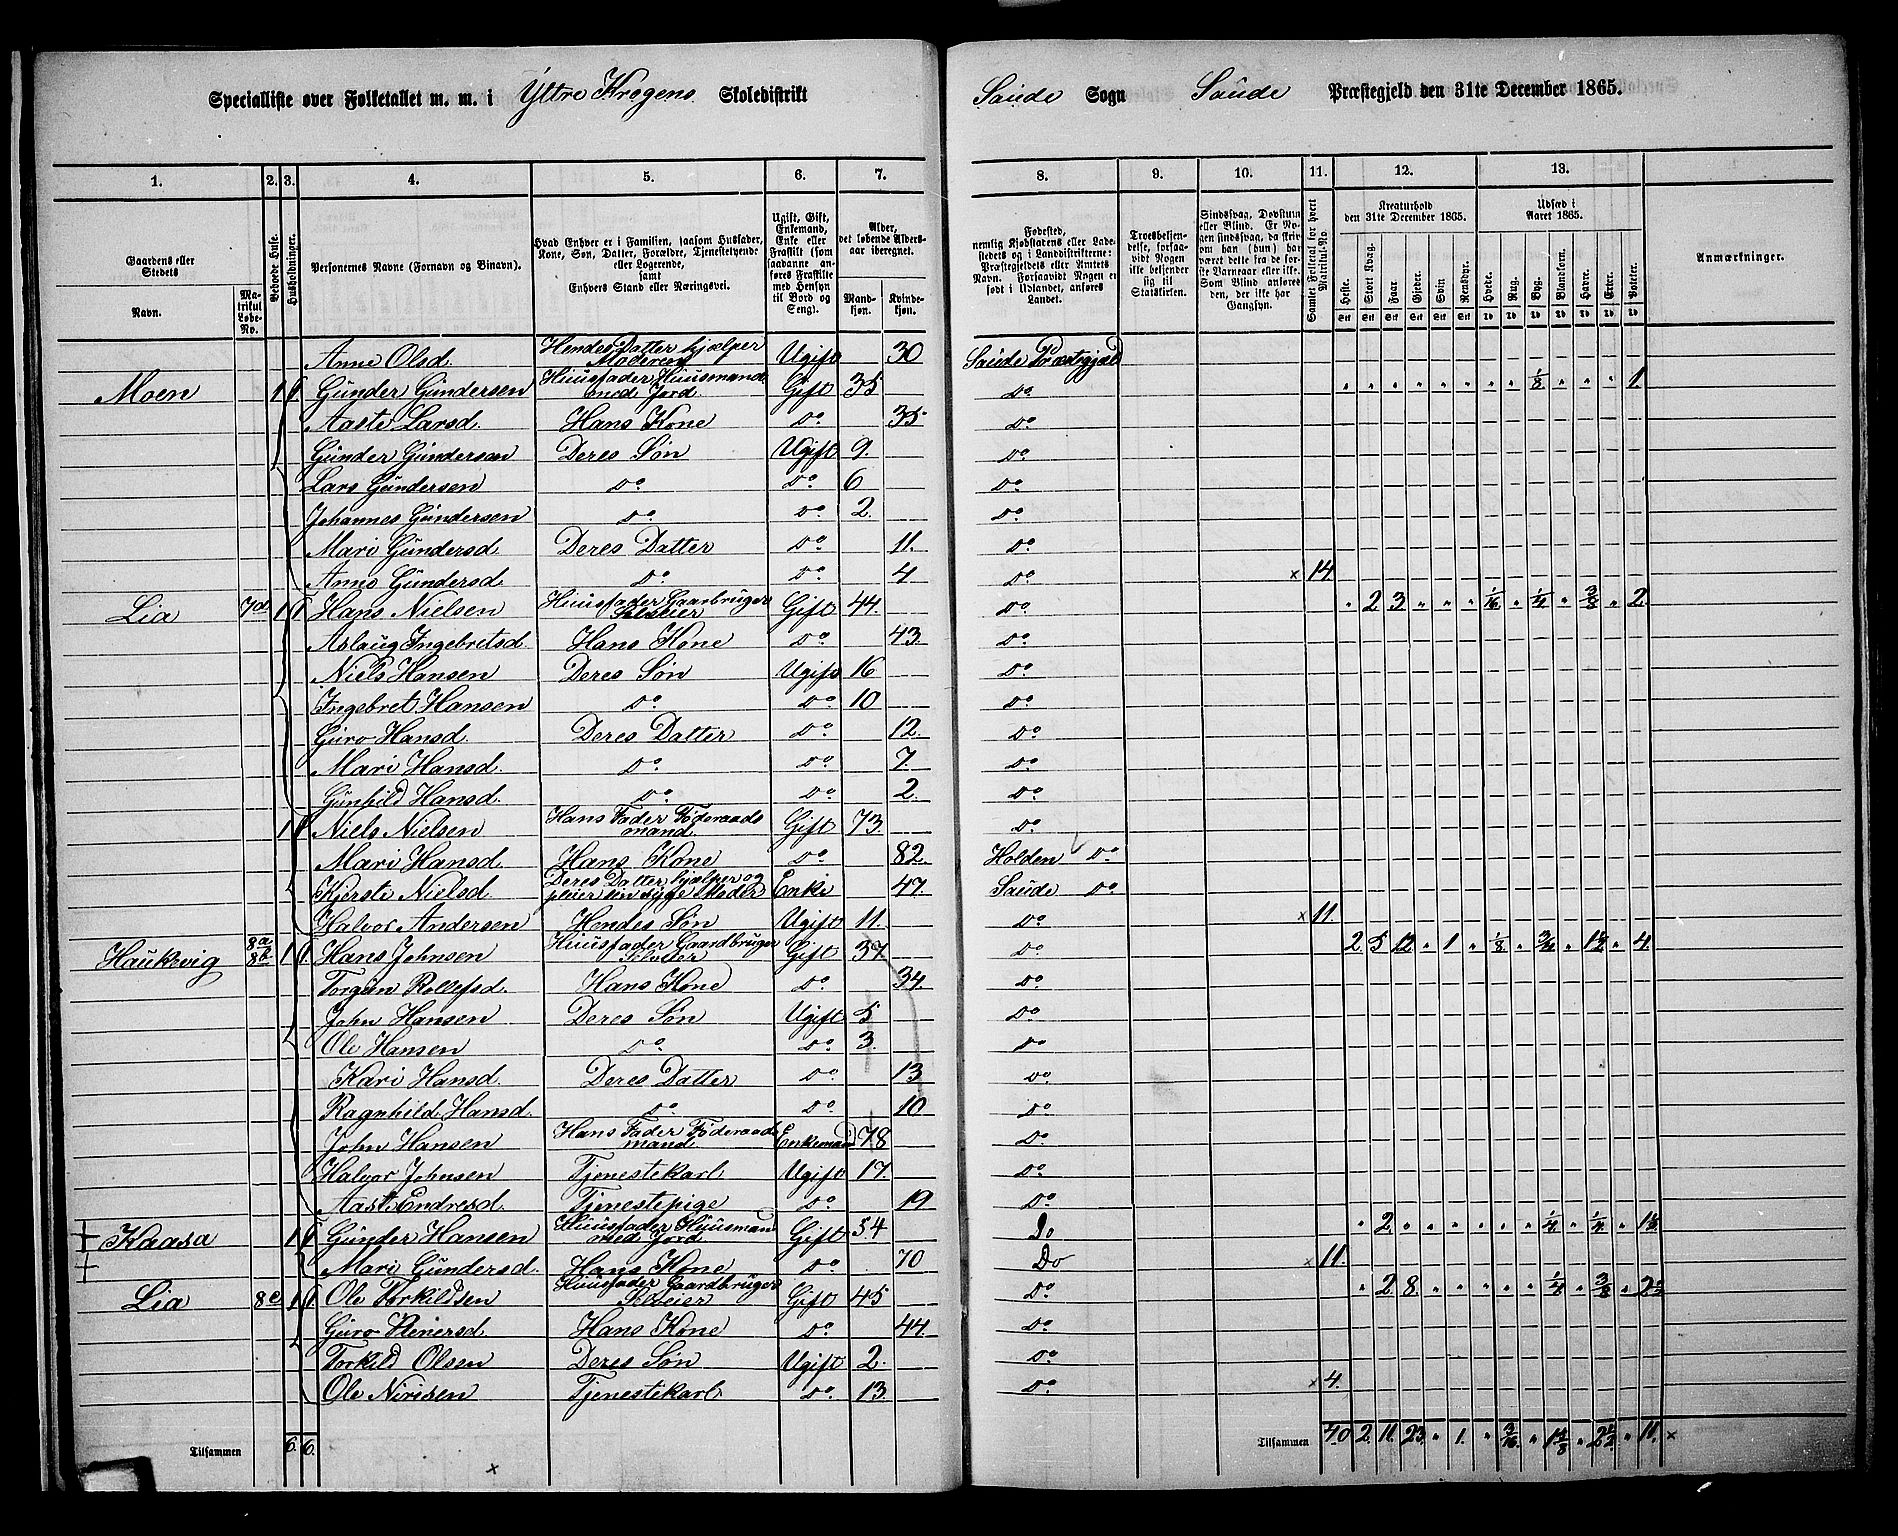 Specialliste over Folketallet m. m. i Yttre Kregens Skoledistrikt Saude Sogn Saude Præstegjeld den 31te December 1865.
1. 2. 3. 4. 5. 6. 7. 8. 9. 10. 11. 12. 13.
Gaardens eller Stedets Navn. Matrikul Løbe-No. Beboede Huse. Husholdninger. Personernes Navne (Fornavn og Binavn). Hvad Enhver er i Familien, saasom Husfader, Kone, Søn, Datter, Forældre, Tjenestetyende eller Logerende, samt Enhvers Stand eller Næringsvei. Ugift, Gift, Enkemand, Enke eller Fraskilt (som saadanne anføres Fraskilte med Hensyn til Bord og Seng). Alder, det løbende Alders-aar iberegnet. Mandkjøn. Kvindekjøn.
Fødested, nemlig Kjøbstadens eller Ladestedets og i Landdistrikterne: Præstegjeldets eller Amtets Navn. Forsaavidt Nogen er født i Udlandet, anføres Landet. Troesbekjendelse, forsaavidt Nogen ikke bekjender sig til Statskirken. Sindssvag, Døvstum eller Blind. Er Nogen sindssvag, da skrives om han (hun) har været det fra de første Barneaar eller ikke. Som Blind anføres den, der ikke har Gangsyn. Samlet Folketal for hvert Matrikul-No.
Kreaturhold den 31te December 1865. Heste. Stort Kvæg. Faar. Gjeder. Svin. Rensdyr. Udsæd i Aaret 1865. Hvete. Rug. Byg. Blandkorn. Havre. Erter. Poteter. Anmærkninger.
Anne Olsd. Hendes Datter hjælper Moderen Ugift 30 Saude Præstegjæld
Moen 1 1 Gunder Gundersen Huusfader Huusmand med Jord Gift 35 Do " " " " " " " " 1/8 " " " 1
Aaste Larsd. Hans Kone Do 35 Do
Gunder Gundersen Deres Søn Ugift 9. Do
Lars Gundersen Do Do 6 Do
Johannes Gundersen Do Do 2. Do
Mari Gundersd. Deres Datter Do 11. Do
Anne Gundersd. Do Do 4 Do × 14
Lia 7d 1 1 Hans Nielsen Huusfader Gaarbruger Selveier Gift 44. Do " 2 3 " " " 1/16 " 1/4 " 3/8 " 2
Aslaug Ingebretsd. Hans Kone Do 43. Do
Niels Hansen Deres Søn Ugift 16 Do
Ingebret Hansen Do Do 10 Do
Guro Hansd. Deres Datter Do 12. Do
Mari Hansd. Do Do 7. Do
Gunhild Hansd. Do Do 2. Do
1 1 Niels Nielsen Hans Fader Føderaads mand Gift 73. Do
Mari Hansd. Hans Kone Do 82. Holden Do
Kjerste Nielsd. Deres Datter hjælper og pleier sin syge Moder Enke 47. Saude Do
Halvor Andersen Hendes Søn Ugift 11. Do × 11.
Haukvig 8a 8b 1 1 Hans Johnsen Huusfader Gaardbruger Selveier Gift 37. Do 2 5 12 " 1 " 1/8 " 3/4 " 1 1/2 " 4
Torgun Rollefsd. Hans Kone Do 34 Do
John Hansen Deres Søn Ugift 5 Do
Ole Hansen Do Do 3. Do
Kari Hansd. Deres Datter Do 13 Do
Ragnhild Hansd. Do Do 10 Do
John Hansen Hans Fader Føderaads mand Enkemand 78 Do
Halvor Johnsen Tjenestekarl Ugift 17. Do
Aaste Endresd. Tjenestepige Do 19 Do
Kaasa 1 1 Gunder Hansen Huusfader Huusmand med Jord Gift 54 Do " 2 " " " " " " 1/4 " 1/4 "
Mari Gundersd. Hans Kone Do 70 Do × 11.
Lia 8c 1 1 Ole Torkildsen Huusfader Gaardbruger Selveier Gift 45 Do " 2 8 " " " " " 1/4 " 3/8 "
Guro Reiersd. Hans Kone Do 44. Do
Torkild Olsen Deres Søn Ugift 2. Do
Ole Nirisen Tjenestekarl Do 13. Do × 4.
Tilsammen 6. 6. Tilsammen 40 2 11. 23. " 1. " 3/16 " " " 11. ×